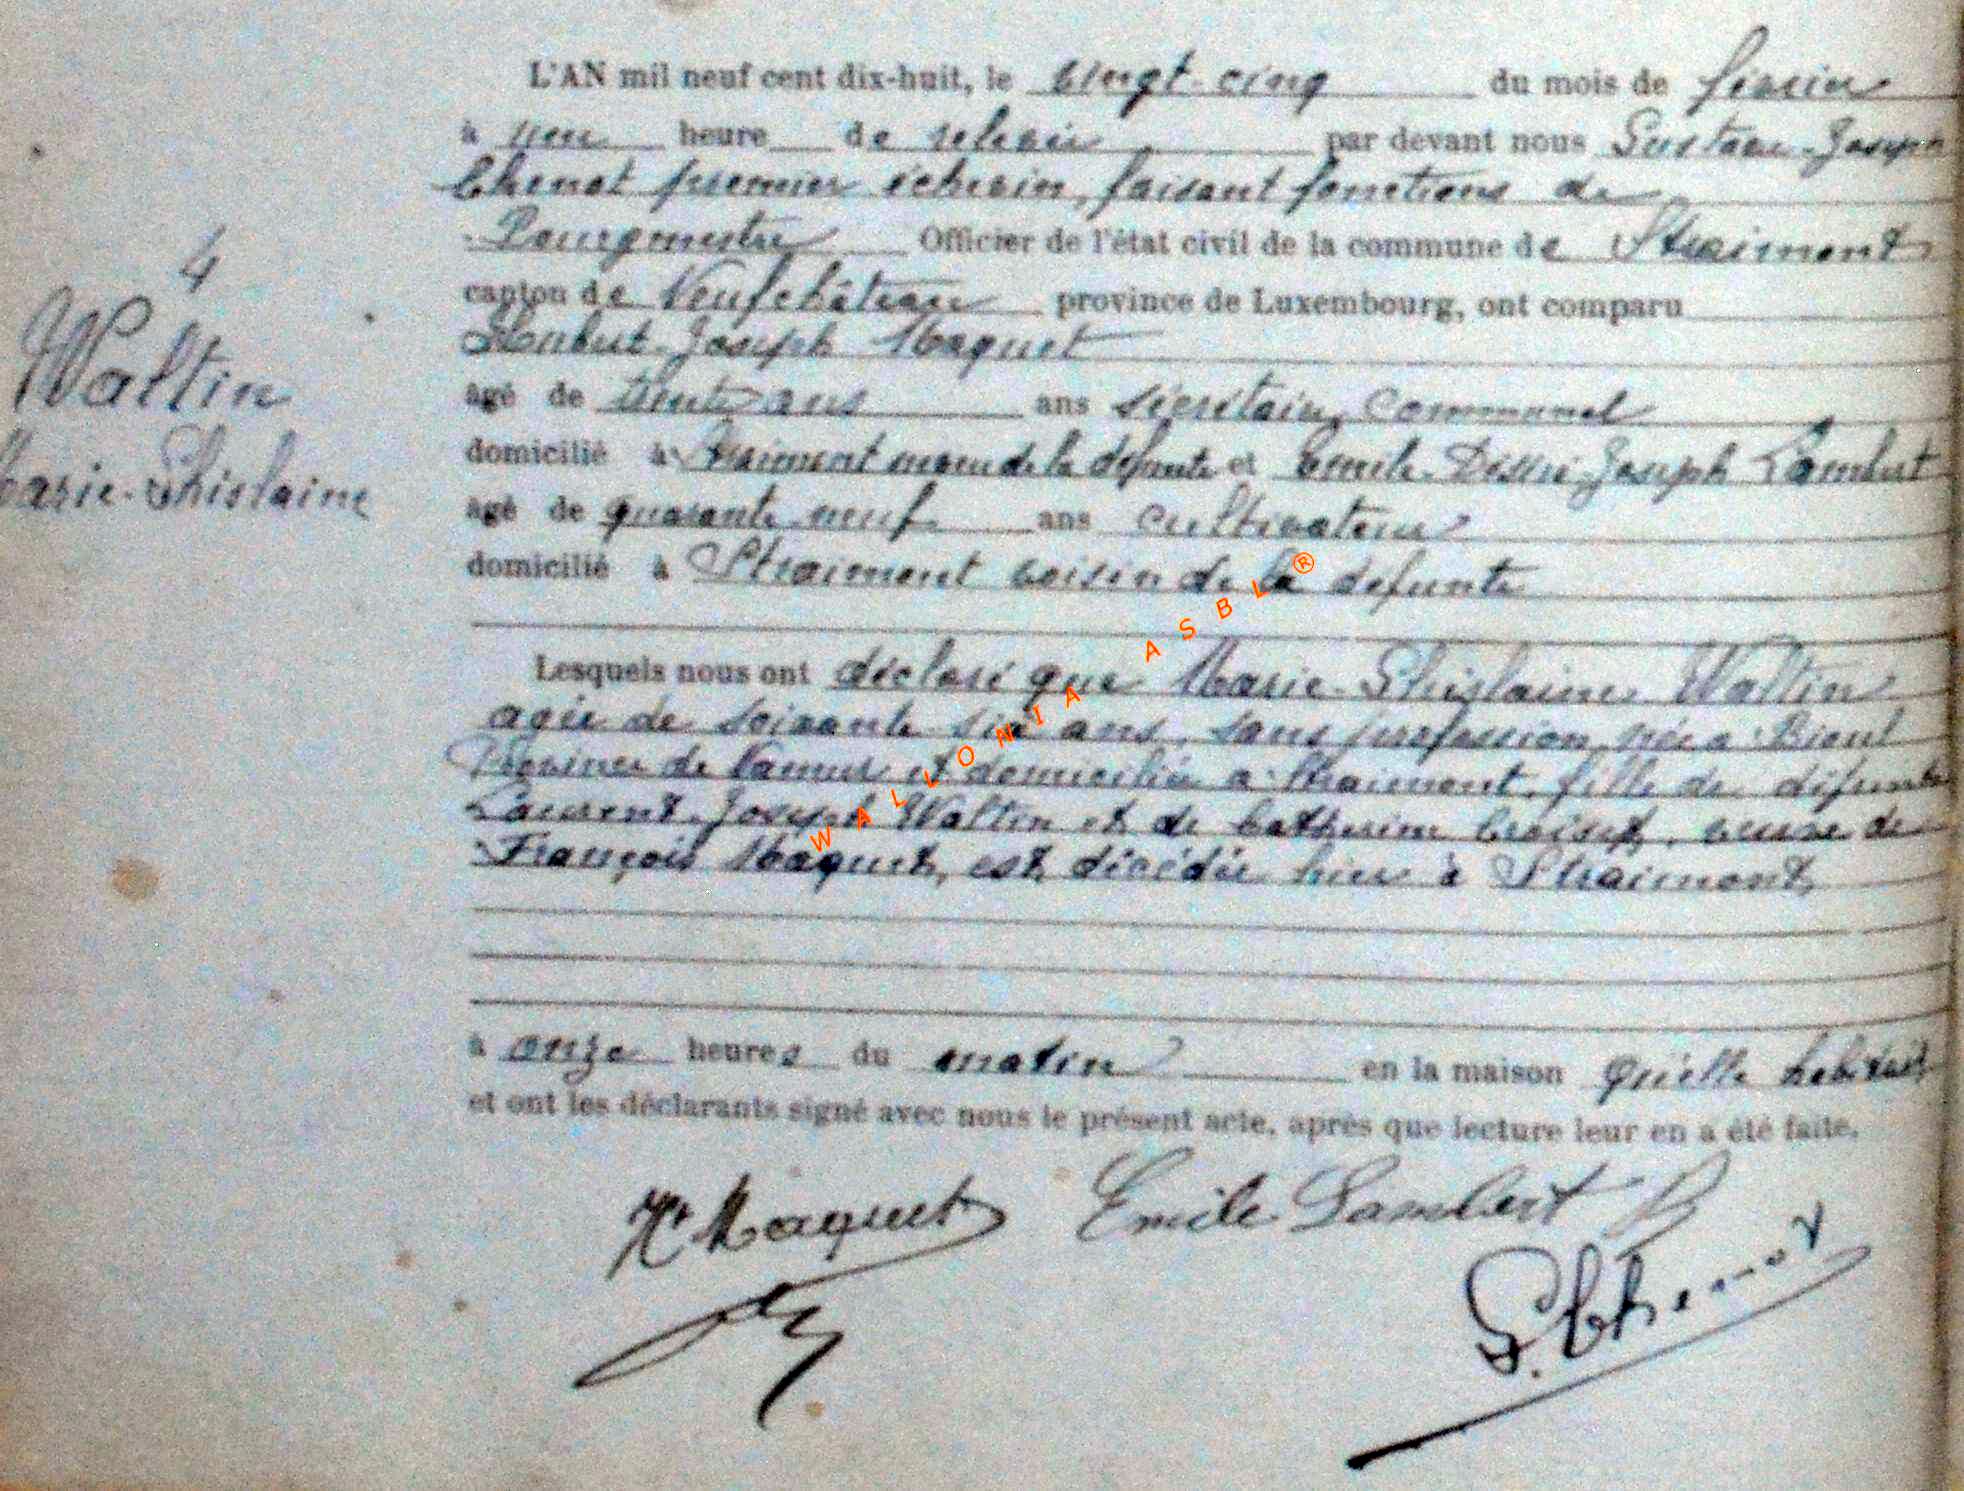 L'AN mil neuf cent dix-huit, le vingt-cinq du mois de février
à une heure de relevée par devant nous Gustave-Joseph
Chenot premier échevin, faisant fonctions de
Bourgmestre Officier de l'état civil de la commune de Straimont
canton de Neufchâteau province de Luxembourg, ont comparu
Hubert-Joseph Maquet
âgé de trente ans ans secrétaire communal
domicilié à Straimont neveu de la défunte et Emile-Désiré-Joseph Lambert
âgé de quarante neuf ans cultivateur
domicilié à Straimont voisin de la défunte
4
Waltin
Marie-Ghislaine
Lesquels nous ont déclaré que Marie-Ghislaine Waltin
agée de soixante six ans, sans profession née à Bioul
Province de Namur et domiciliée à Straimont, fille de défunts
Laurent-Joseph Waltin et de Catherine, veuve de
François Maquet, est décédée hier à Straimont
à onze heures du matin en la maison qu'elle habitait
et ont les déclarants signé avec nous le présent acte, après que lecture leur en a été faite.
Ht Maquet Emile Lambert
G. Chenot
WALLONIA ASBL ®